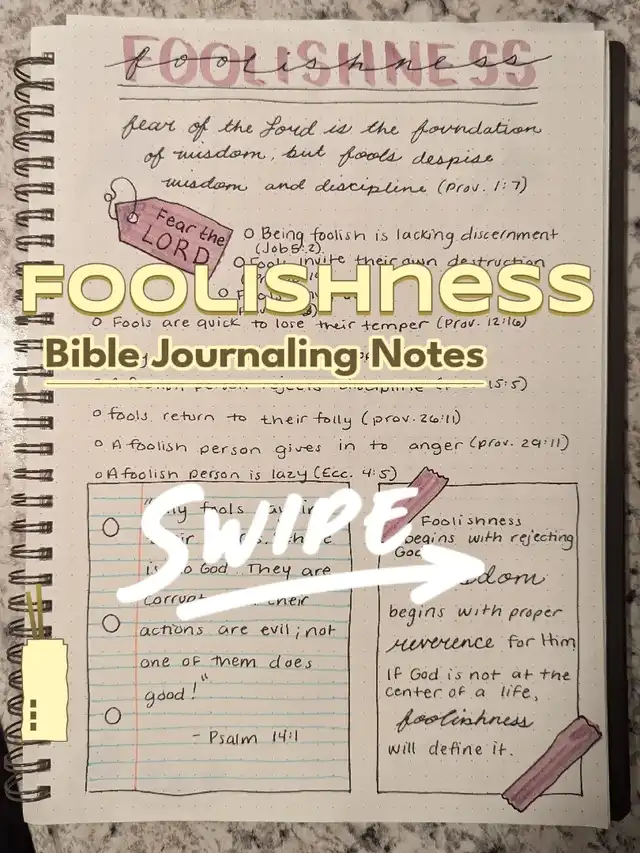 FOOLISHNESS
foolishness
fear of the Lord is the foundation
of wisdom, but fools despise
wisdom and discipline (Prov. 1:7)
Fear the
LORD
Being foolish is lacking discernment
(Job 5:2)
Fools invite their own destruction
FOOLISHNESS
Fools are quick to lose their temper (Prov. 12:16)
Bible Journaling Notes
15:5)
fools return to their folly (prov. 26:11)
A foolish person gives in to anger (prov. 29:11)
A foolish person is lazy (Ecc. 4:5)
SWIPE
fools
is no God. They are
corrupt their
actions are evil; not
one of them does
good!"
- Psalm 14:1
Foolishness
begins with rejecting
God.
begins with proper
reverence for Him
If God is not at the
center of a life,
foolishness
will define it.